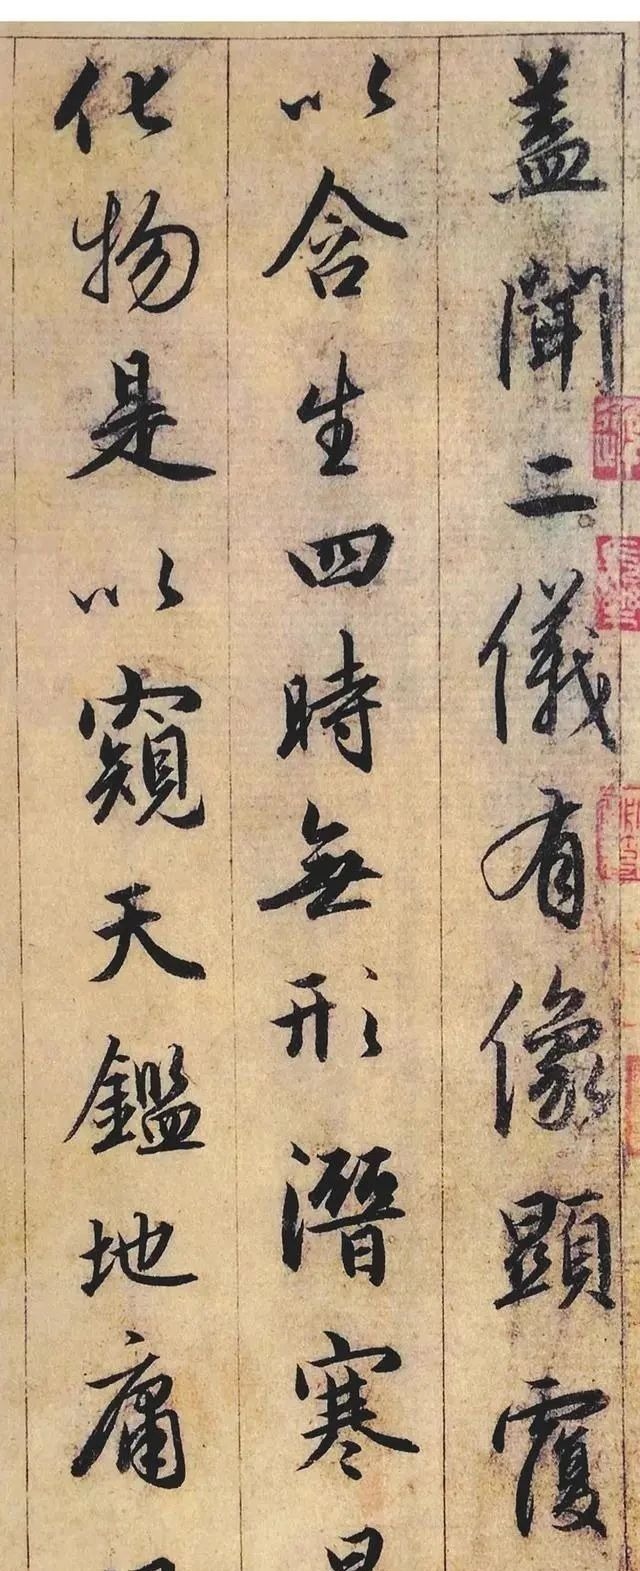 蓋聞二儀有像顯覆
以含生四時無形潛寒
化物是以窺天鑑地庸